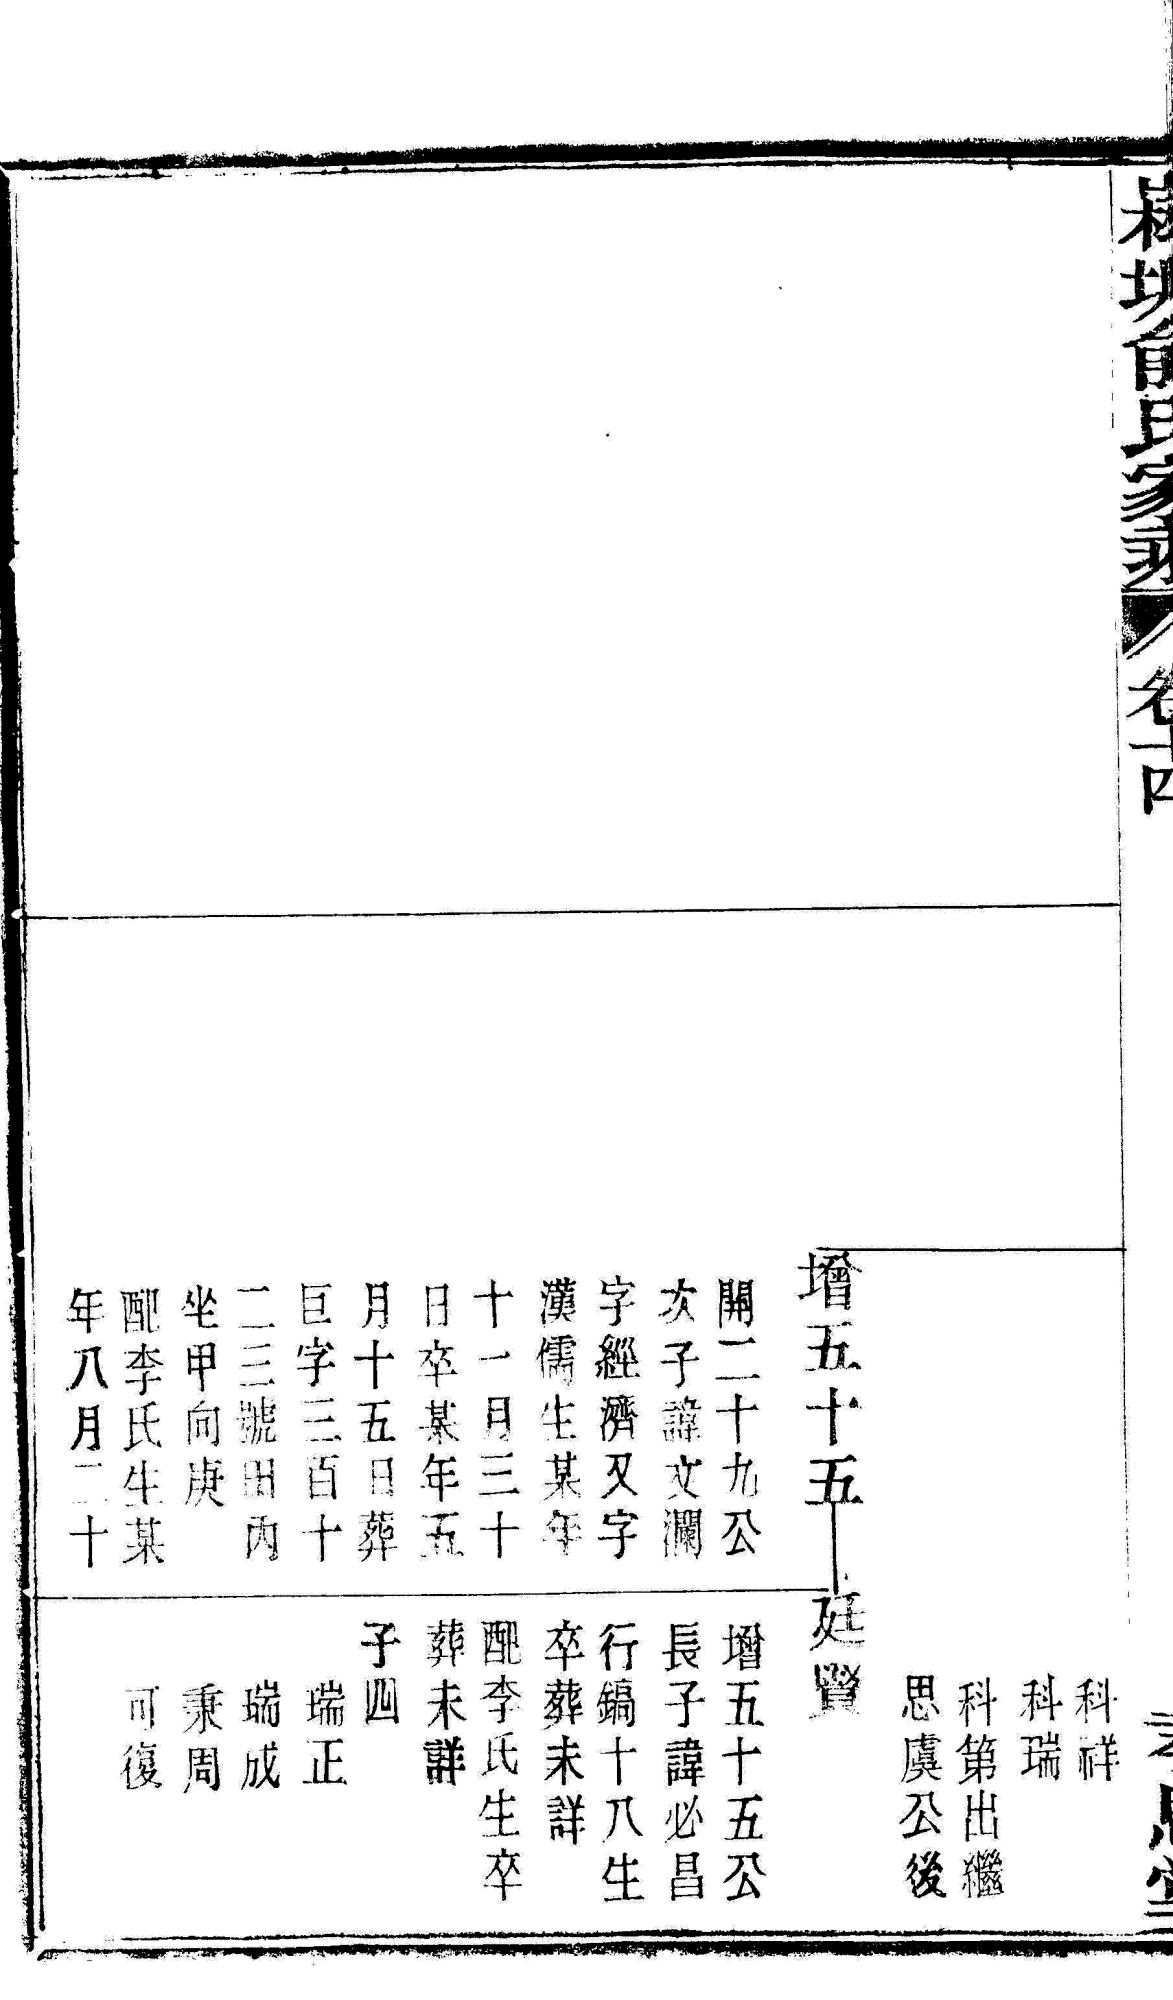 俞氏家乘
卷十四
科祥
科瑞
科第出繼
思虞公後
增五十五
開二十九公
次子諱文瀾
字經濟又字
漢儒生某年
十一月三十
日卒某年五
月十五日葬
巨字三百十
二三號田內
坐甲向庚
配李氏生某
年八月二十
廷賢
增五十五公
長子諱必昌
行鎬十八生
卒葬未詳
配李氏生卒
葬未詳
子四
瑞正
瑞成
秉周
可復